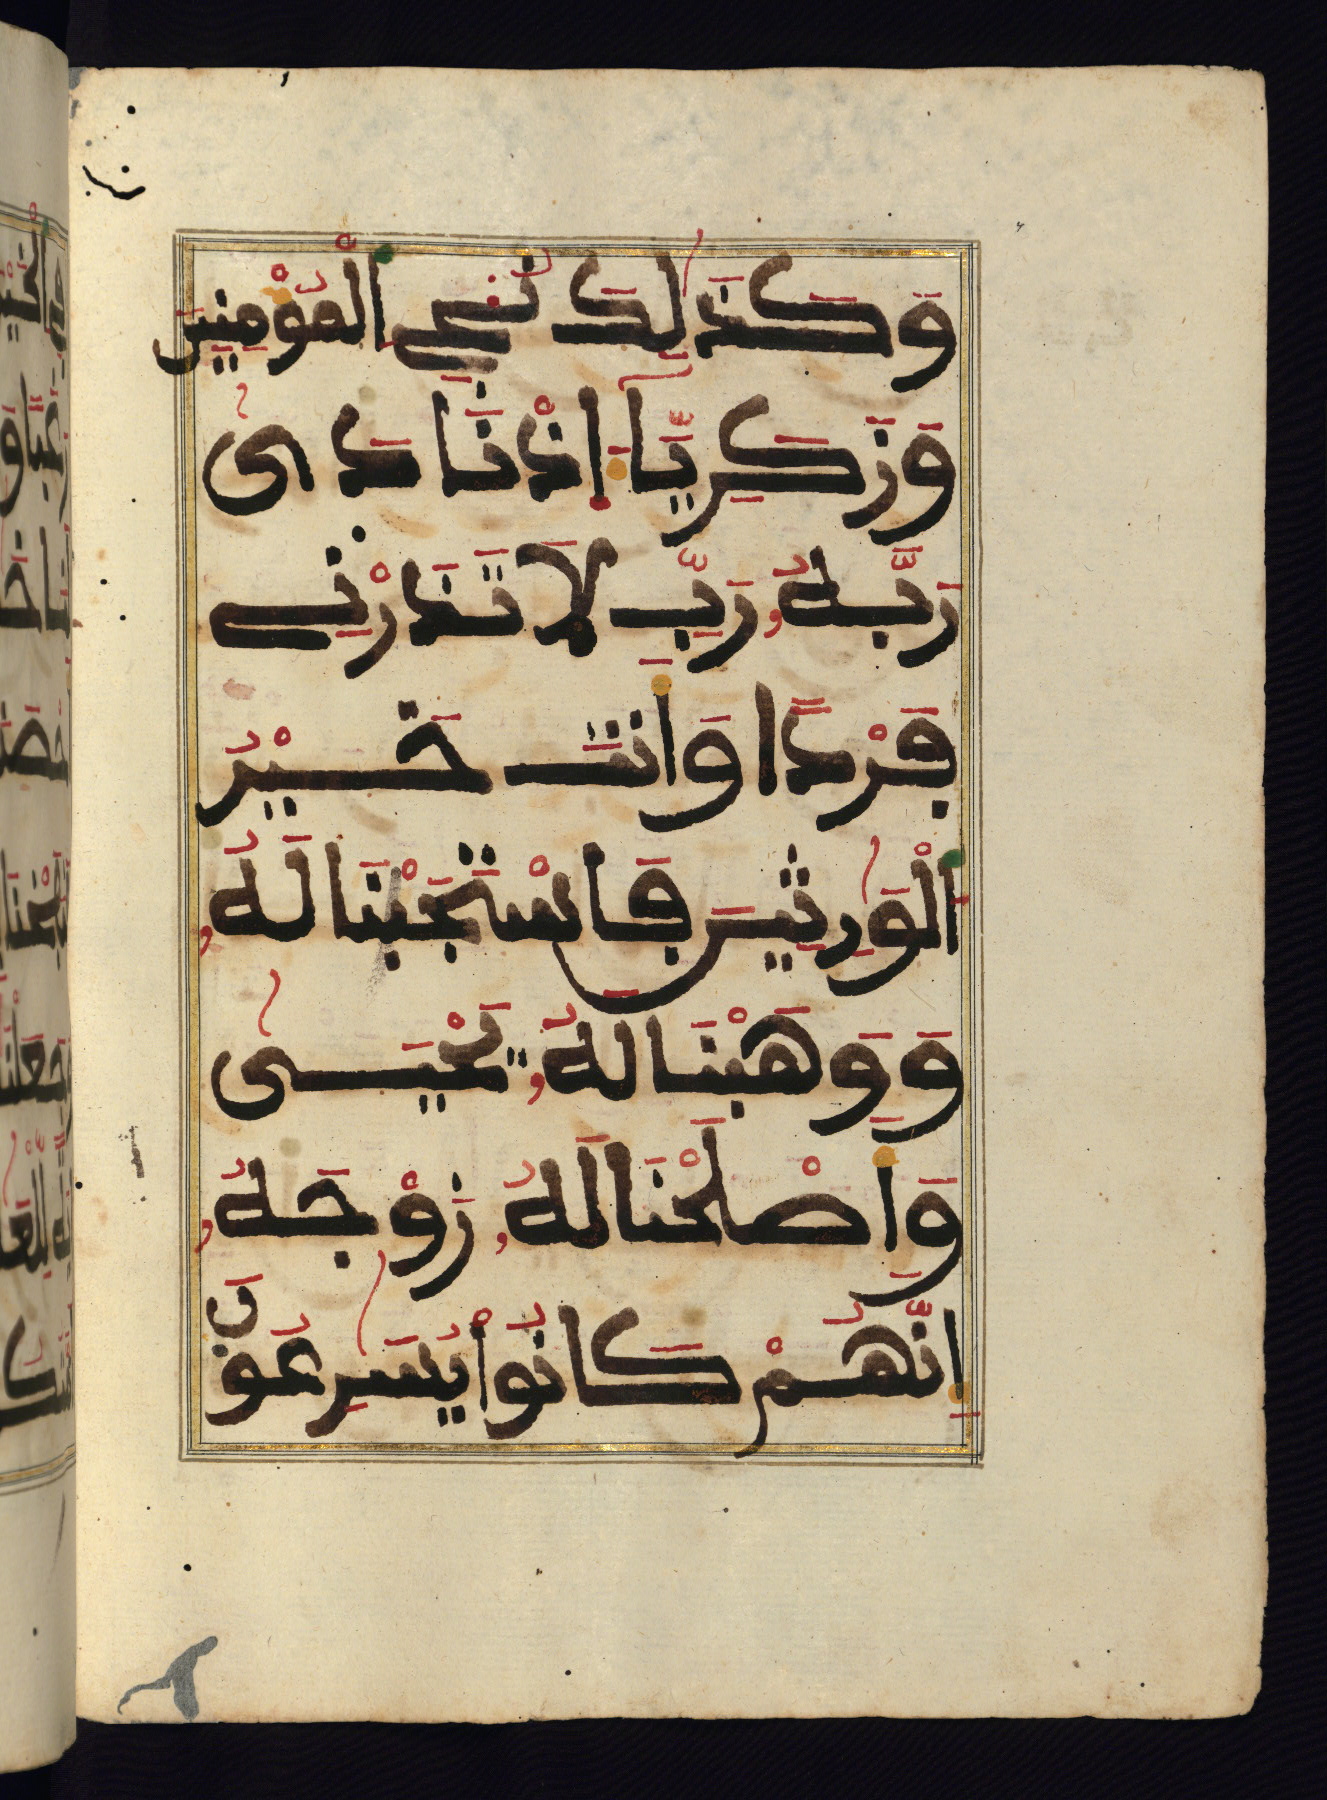 وَكَذَٰلِكَ نُنجِي الْمُؤْمِنِينَ
وَزَكَرِيَّاءَ اِذْ نَادَىٰ
رَبَّهُۥ رَبِّ لَا تَذَرْنِے
فَرْدًا وَأَنتَ خَيْرُ
الْوَٰرِثِينَ فَاسْتَجَبْنَا لَهُۥ
وَوَهَبْنَا لَهُۥ يَحْيَىٰ
وَأَصْلَحْنَا لَهُۥ زَوْجَهُۥ
إِنَّهُمْ كَانُوا يُسَٰرِعُونَ